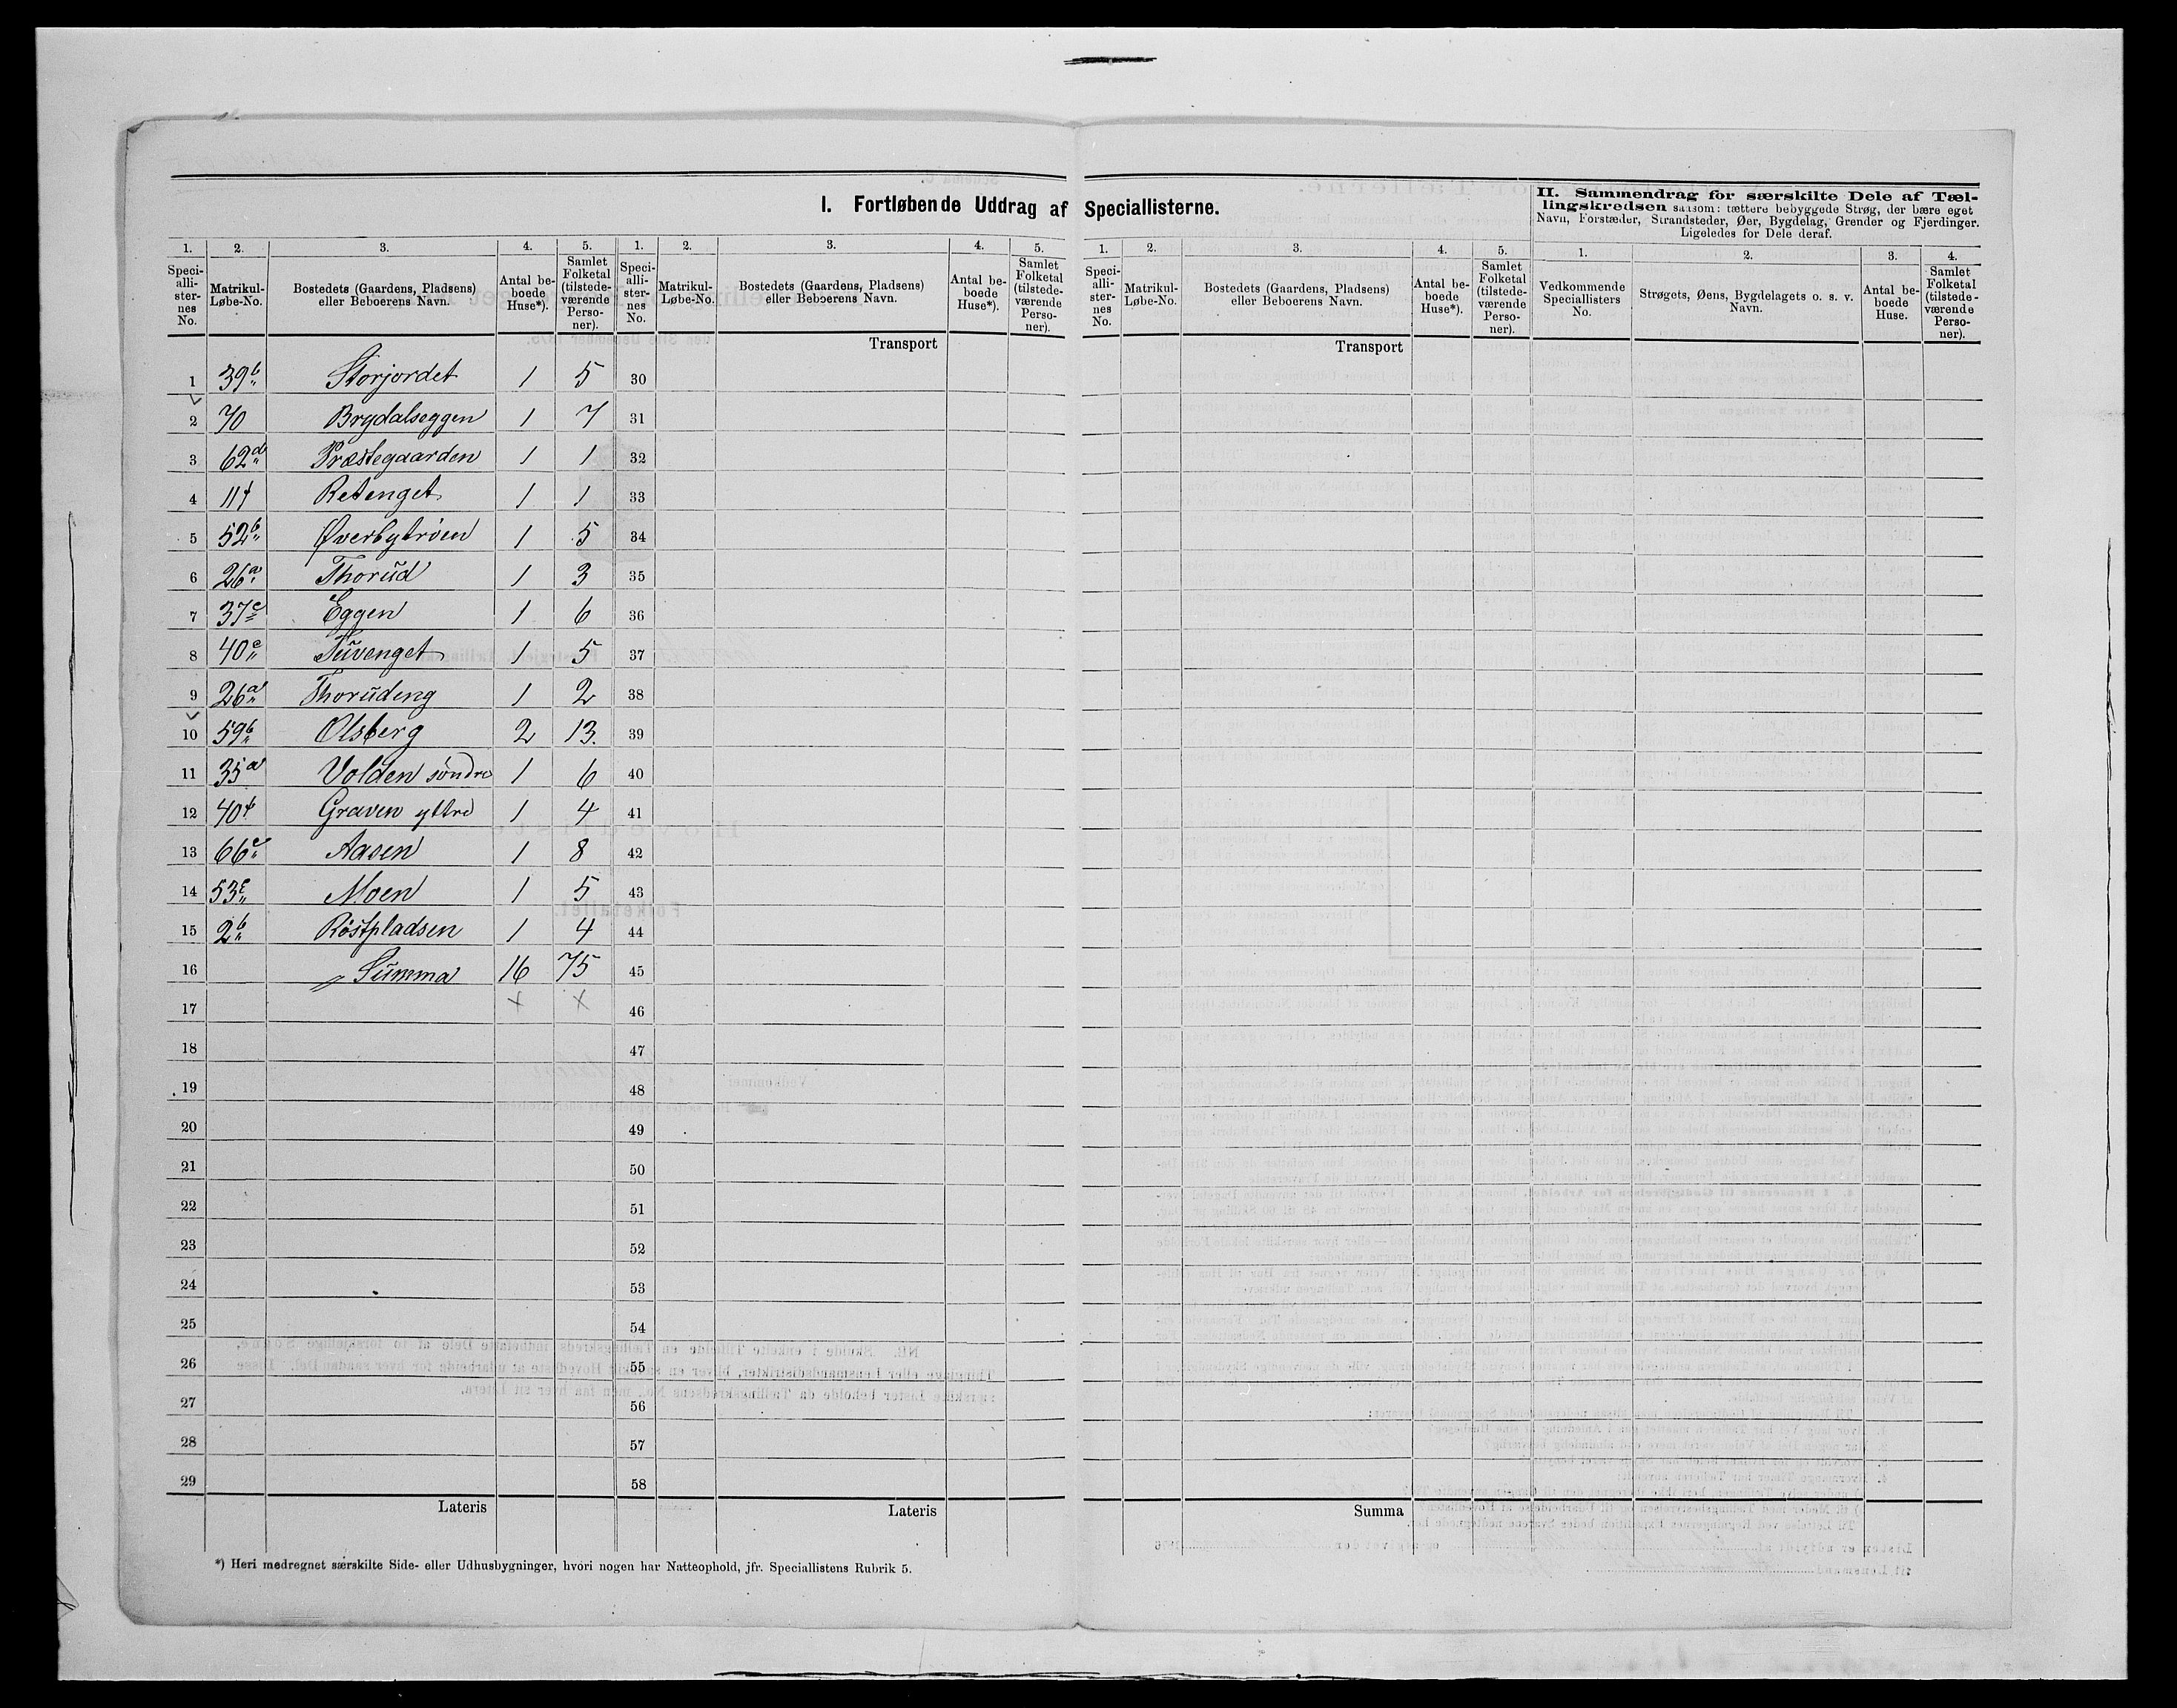 I. Fortløbende Uddrag af Speciallisterne.
II. Sammendrag for særskilte Dele af Tæl-
lingskredsen saasom: tættere bebyggede Strøg, der bære eget
Navn, Forstæder, Strandsteder, Øer, Bygdelag, Grender og Fjerdinger.
Ligeledes for Dele deraf.
1. 2. 3. 4. 5. 1. 2. 3. 4. 5. 1. 2. 3. 4. 5. 1. 2. 3. 4.
Speci-
alli-
ster-
nes
No.
Matrikul-
Løbe-No.
Bostedets (Gaardens, Pladsens)
eller Beboerens Navn.
Antal be-
boede
Huse*).
Samlet
Folketal
(tilstede-
værende
Perso-
ner).
Speci-
alli-
ster-
nes
No.
Matrikul-
Løbe-No.
Bostedets (Gaardens, Pladsens)
eller Beboerens Navn.
Antal be-
boede
Huse*).
Samlet
Folketal
(tilstede-
værende
Perso-
ner).
Speci-
alli-
ster-
nes
No.
Matrikul-
Løbe-No.
Bostedets (Gaardens, Pladsens)
eller Beboerens Navn.
Antal be-
boede
Huse*).
Samlet
Folketal
(tilstede-
værende
Perso-
ner).
Vedkommende
Speciallisters
No.
Strøgets, Øens, Bygdelagets o. s. v.
Navn.
Antal be-
boede
Huse.
Samlet
Folketal
(tilstede-
værende
Perso-
ner).
Transport Transport
1 39b Storjordet 1 5 30
2 70 Brydalseggen 1 7 31
3 62d Præstegaarden 1 1 32
4 11f Retenget 1 1 33
5 52b Øverbytrøen 1 5 34
6 26a Thorud 1 3 35
7 37c Eggen 1 6 36
8 40c Tuvenget 1 5 37
9 26a Thorudeng 1 2 38
10 59b Olsberg 2 13. 39
11 35a Volden søndre 1 6 40
12 40f Graven yttre 1 4 41
13 66c Aasen 1 8 42
14 53c Moen 1 5 43
15 2b Röstpladsen 1 4 44
16 Summa 16 75 45
17 46
18 47
19 48
20 49
21 50
22 51
23 52
24 53
25 54
26 55
27 56
28 57
29 58
Lateris Lateris Summa
*) Heri medregnet særskilte Side- eller Udhusbygninger, hvori nogen har Natteophold, jfr. Speciallistens Rubrik 5.